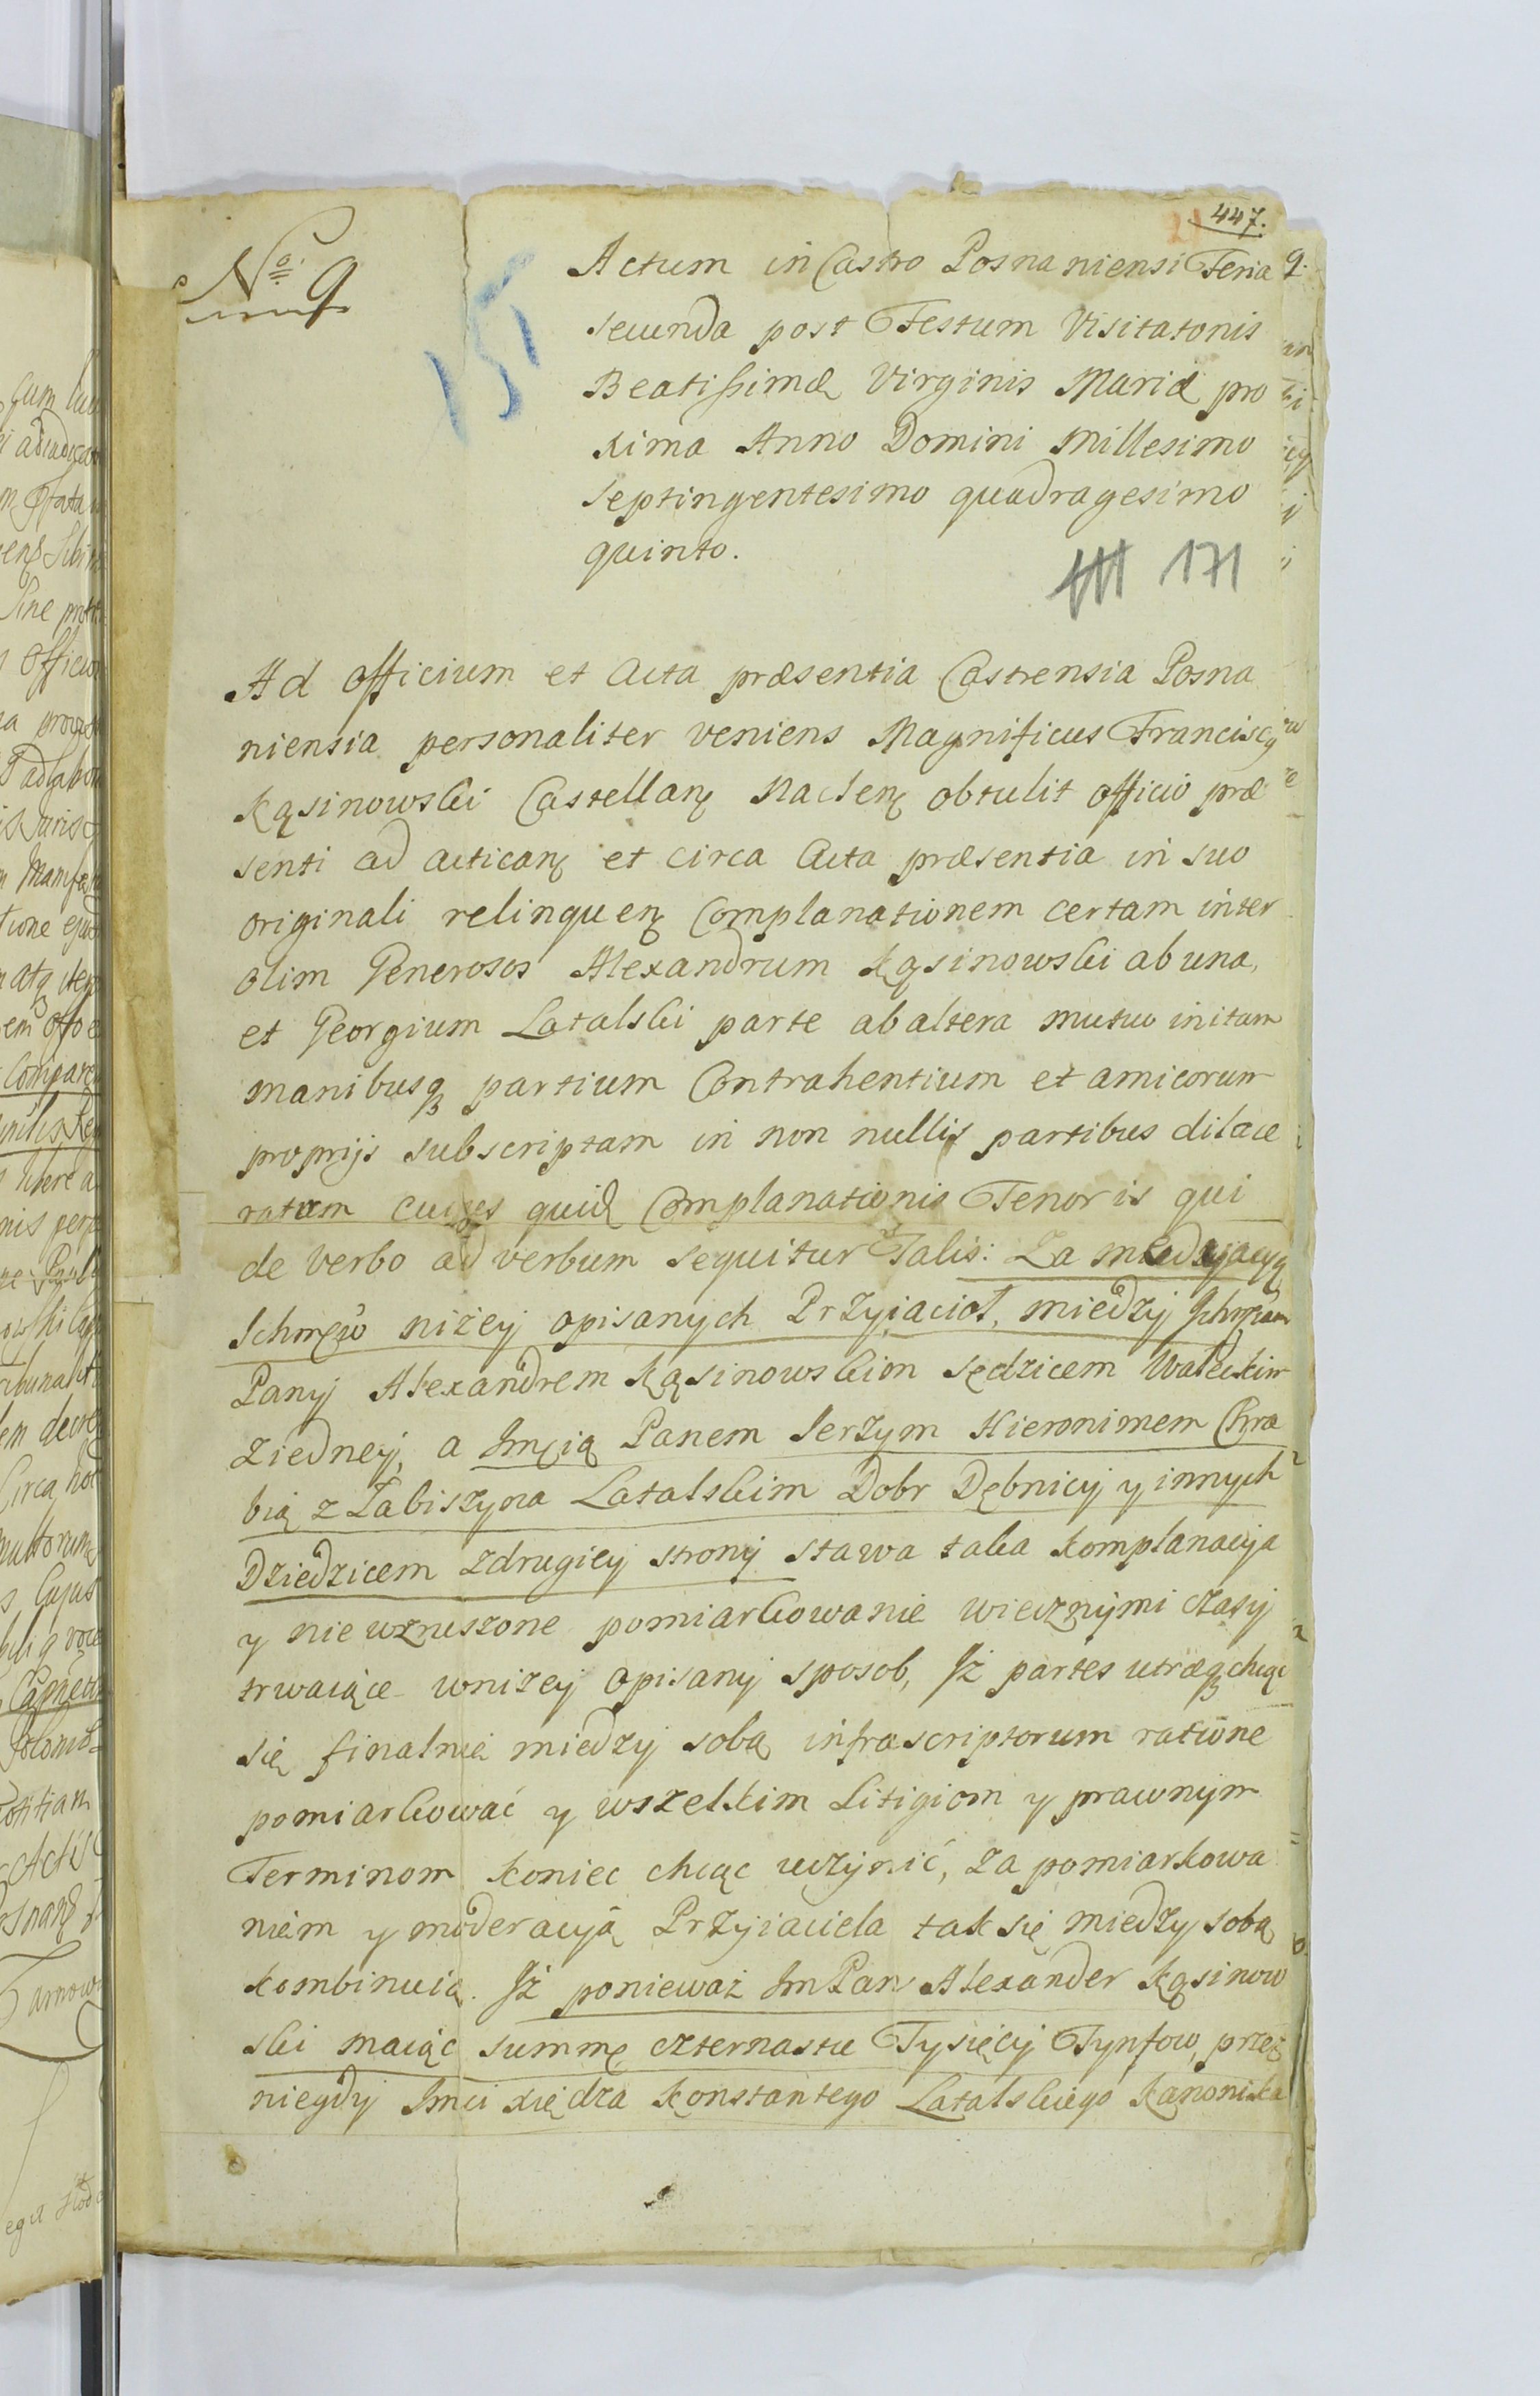 447.
No 9
15
Actum in Castro Posnaniensi Feria
secunda post Festum Visitatonis
Beatissimæ Virginis Mariæ pro
xima Anno Domini Millesimo
septingentesimo quadragesimo
quinto.
171
Ad officium et Acta præsentia Castrensia Posna
niensia personaliter veniens Magnificus Franciscq
Kąsinowski Castellanę Naclenę obtulit officio præ
senti ad acticanę et circa Acta præsentia in suo
originali relinquenę Complanationem certam inter
olim Generosos Alexandrum Kąsinowski ab una,
et Georgium Latalski parte ab altera mutuo initam
manibusqꝫ partium Contrahentium et amicorum
proprijs subscriptam in non nullis partibus dilace
ratam cuius quid Complanationis Tenor is qui
de verbo ad verbum sequitur Talis: Za medyacyą
Ichmćiow niżey opisanych Przyiacioł, miedzy
Pany Alexandrem Kąsinowskim Sędzicem Wałeckim
ziedney, a Jmcią Panem Jerzym Hieronimem Chra
bią z Łabiszyna Latalskim Dobr Dębnicy y innych
Dziedzicem zdrugiey strony stawa taka komplanacyja
y nie wzruszone pomiarkowanie wiecznymi czasy
trwaiące wniżey opisany sposob, Jż partes utræqꝫ chcąc
się finalnie miedzy sobą infrascriptorum ratione
pomiarkować y wszelkim Litigiom y prawnym
Terminom koniec chcąc uczynić, za pomiarkowa
niem y moderacyą Przyiaciela tak się miedzy sobą
kombinuią. Jż ponieważ Jm Pan Alexander Kąsinow
ski maiąc summę czternastu Tysięcy Tynfow, przez
niegdy Jmci xiędza Konstantego Latalskiego Kanonika